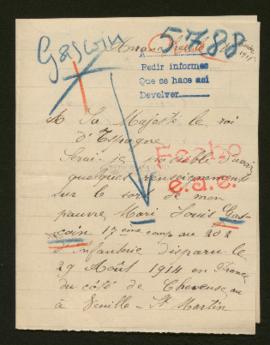 Gascoin
5788
A
Pedir informes
Que se hace así
Devolver.
A Sa Majesté le roi
d'Espagne
Serai-t-il possible d'avoir
quelques renseignements
sur le sort de mon
pauvre Mari Louis Gas-
coin 17 eme comp au 202
d'Infanterie disparu le
29 Août 1914 en France
du côté de
à St Martin
Fecho
e.a.e.